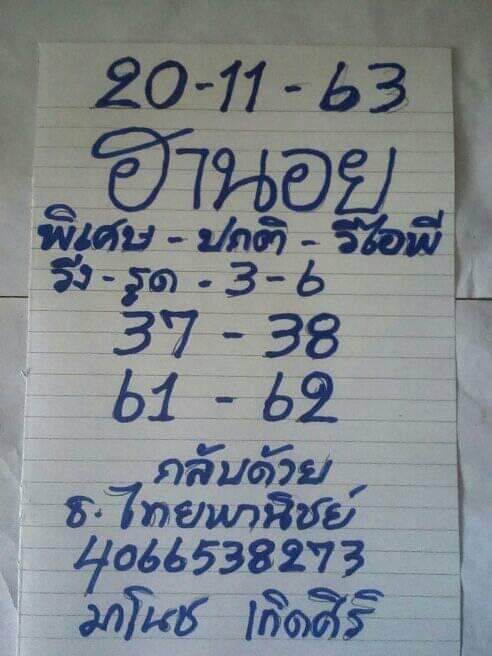 20-11-63
ฮานอย
พิเศษ - ปกติ - วีไอพี
วิ่ง - รูด - 3-6
37 - 38
61 - 62
กลับด้วย
ธ.ไทยพานิชย์
4066538273
มาโนช เกิดศิริ